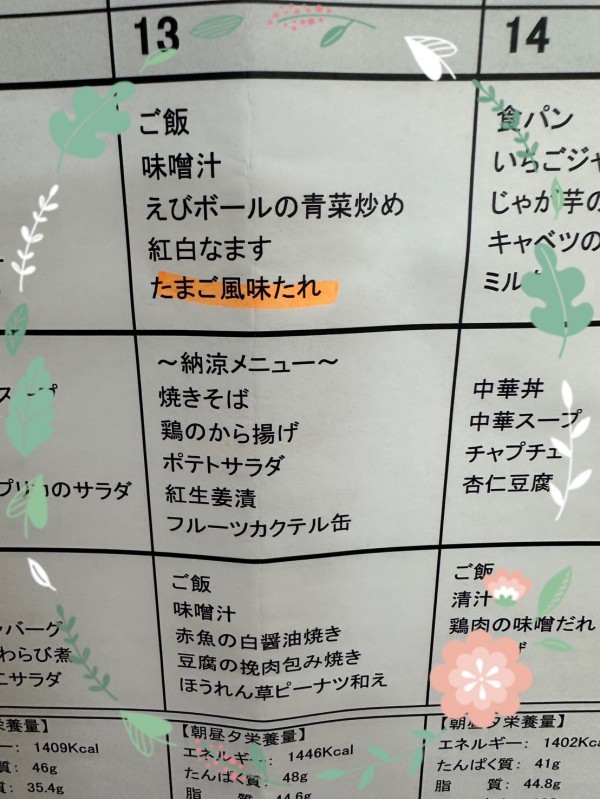 13
14
ご飯
味噌汁
えびボールの青菜炒め
紅白なます
たまご風味たれ
食パン
いちごジャ
じゃが芋の
キャベツの
ミル
～納涼メニュー～
焼きそば
鶏のから揚げ
ポテトサラダ
紅生姜漬
フルーツカクテル缶
中華丼
中華スープ
チャプチェ
杏仁豆腐
スープ
プリカのサラダ
ご飯
味噌汁
赤魚の白醤油焼き
豆腐の挽肉包み焼き
ほうれん草ピーナツ和え
ご飯
清汁
鶏肉の味噌だれ
バーグ
わらび煮
ニサラダ
栄養量】
ー: 1409Kcal
質: 46g
質: 35.4g
【朝昼夕栄養量】
エネルギー: 1446Kcal
たんぱく質: 48g
脂 質: 44.6g
【朝昼夕栄養量】
エネルギー: 1402Kca
たんぱく質: 41g
脂 質: 44.8g